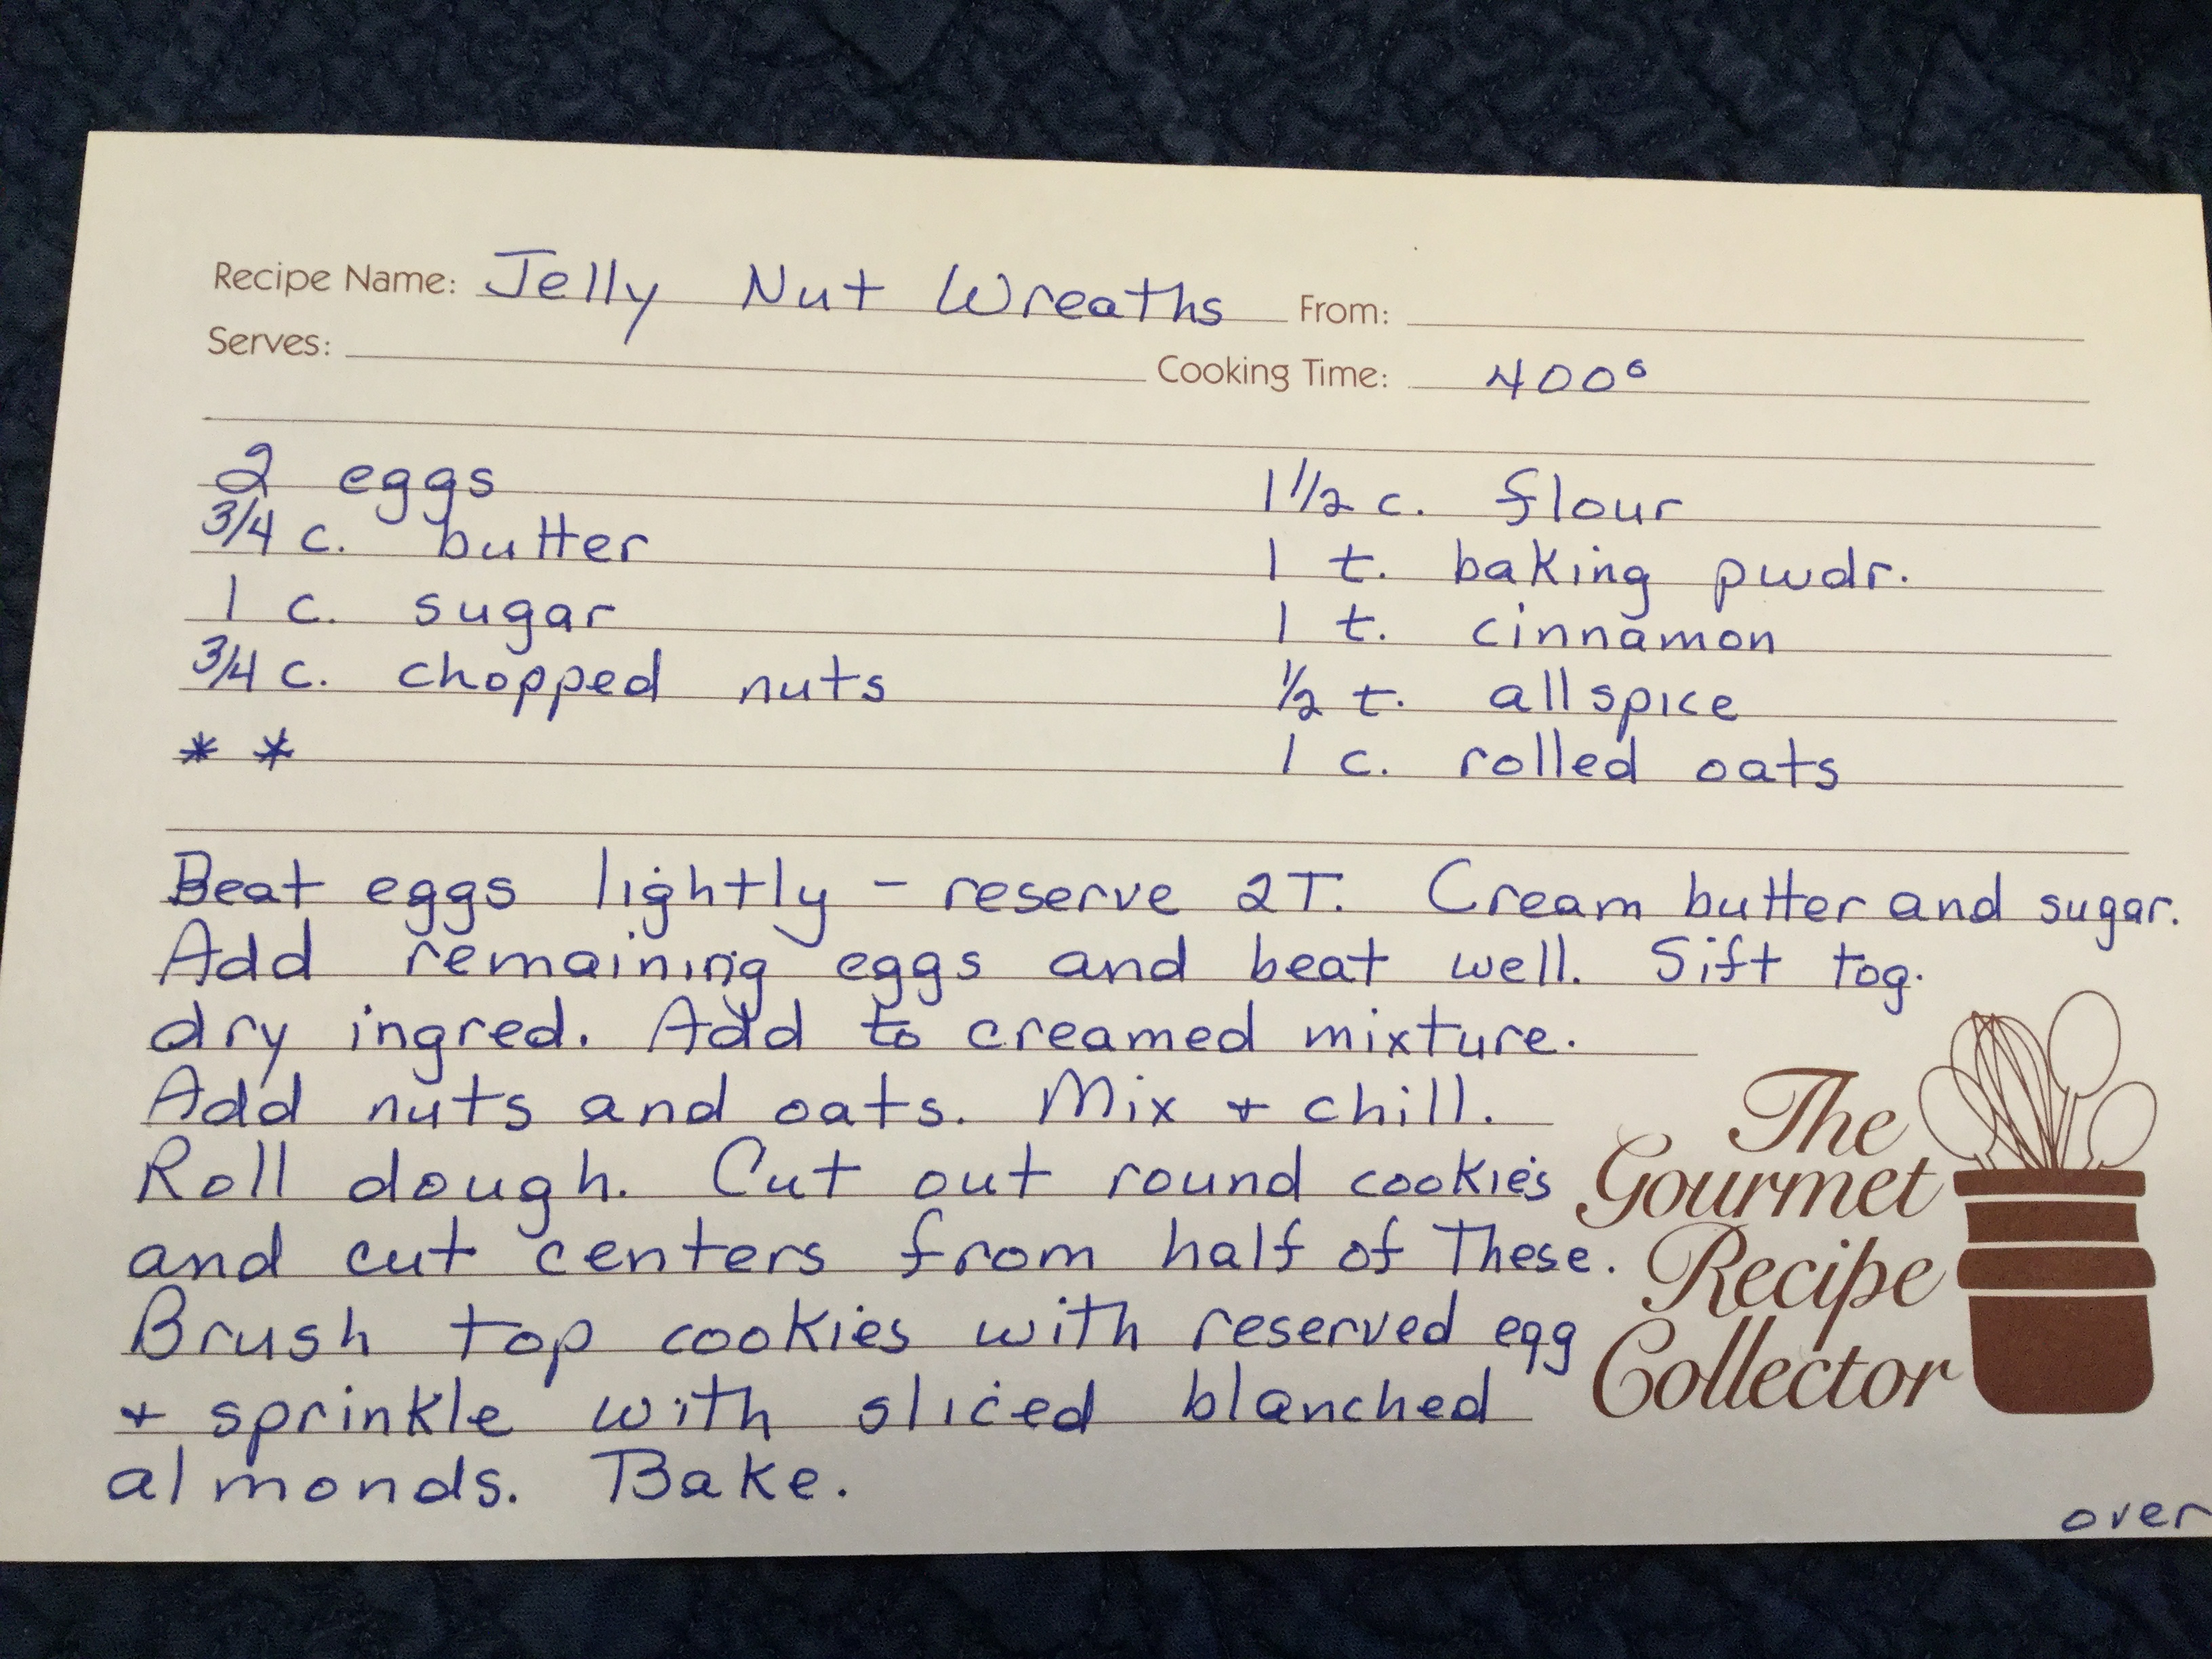 Recipe Name: Jelly Nut Wreaths From:
Serves: Cooking Time: 400°
2 eggs 1 1/2 c. flour
3/4 c. butter 1 t. baking pwdr.
1 c. sugar 1 t. cinnamon
3/4 c. chopped nuts 1/2 t. allspice
* * 1 c. rolled oats
Beat eggs lightly - reserve 2T. Cream butter and sugar.
Add remaining eggs and beat well. Sift tog.
dry ingred. Add to creamed mixture.
Add nuts and oats. Mix + chill.
Roll dough. Cut out round cookies
and cut centers from half of these.
Brush top cookies with reserved egg
+ sprinkle with sliced blanched
almonds. Bake.
The
Gourmet
Recipe
Collector
over